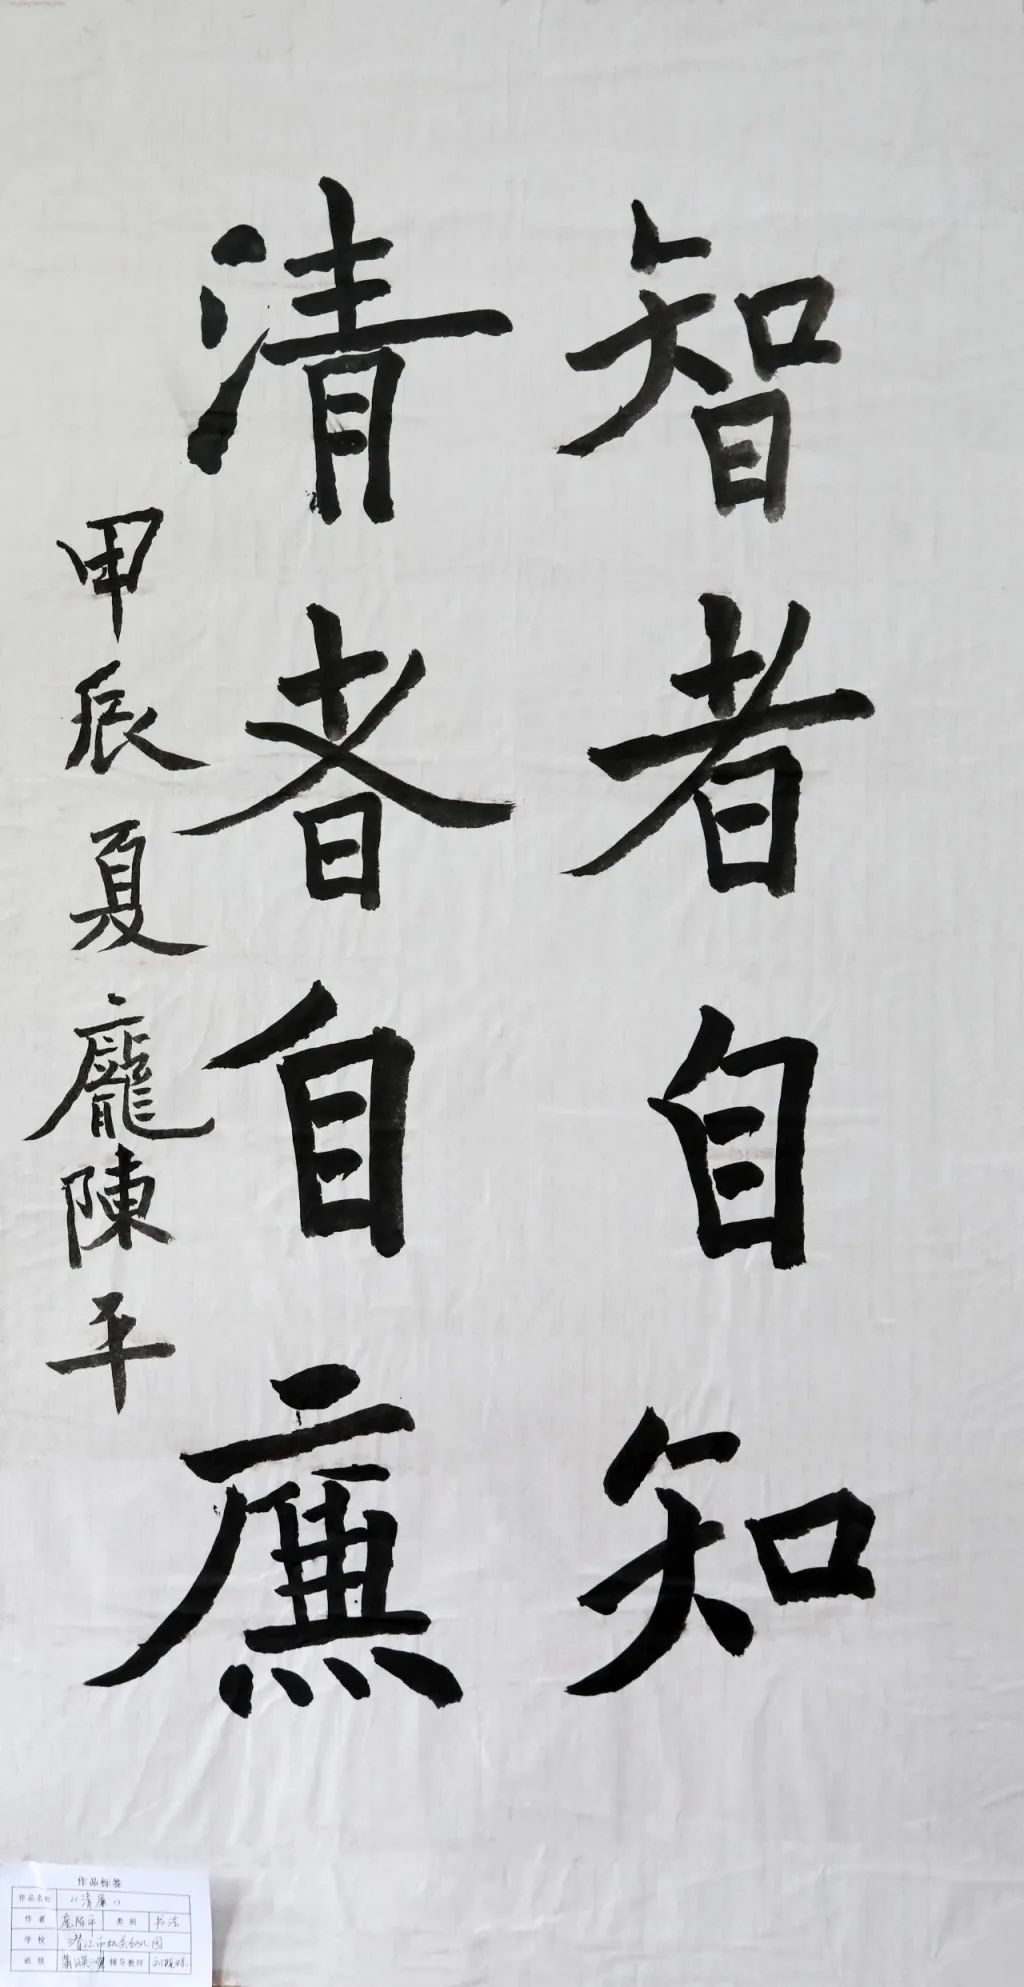 智者自知
清者自廉
甲辰夏龐陳平
作品标签
作品名称 《清廉》
作者 庞陈平 类别 书法
学校 潜江市机关幼儿园
班级 辅导教师